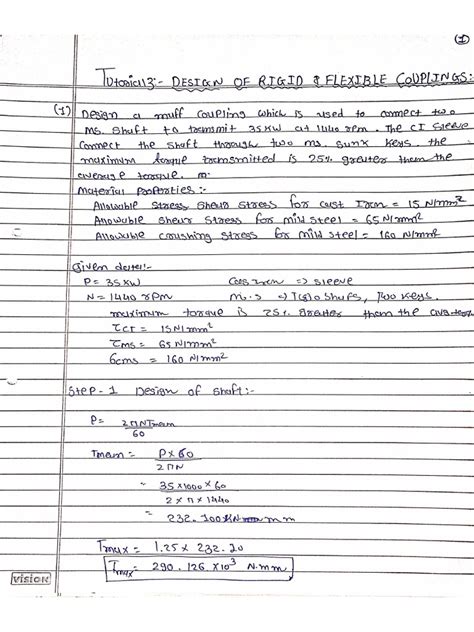 1
Tutorial 3:- DESIGN OF RIGID & FLEXIBLE COUPLINGS:
(1) Design a muff coupling which is used to connect two
MS. shaft to transmit 35 KW at 1440 rpm. The CI sleeve
connect the shaft through two ms. sunk keys. the
maximum torque transmitted is 25% greater them the
average torque.
Material Properties:-
Allowable stress shear stress for cast Iron = 15 N/mm²
Allowable shear stress for mild steel = 65 N/mm²
Allowable crushing stress for mild steel = 160 N/mm²
Given data:-
P = 35 KW Cast Iron => sleeve
N = 1440 rpm m.s => shafts, Two keys.
maximum torque is 25% greater them the
τCI = 15 N/mm²
τMS = 65 N/mm²
σcms = 160 N/mm²
Step-1 Design of shaft:-
P = 2πNTmean
60
Tmean = P×60
2πN
= 35×1000×60
2×π×1440
= 232.100 mm
Tmax = 1.25 × 232.20
Tmax = 290.126 ×10³ N.mm
vision